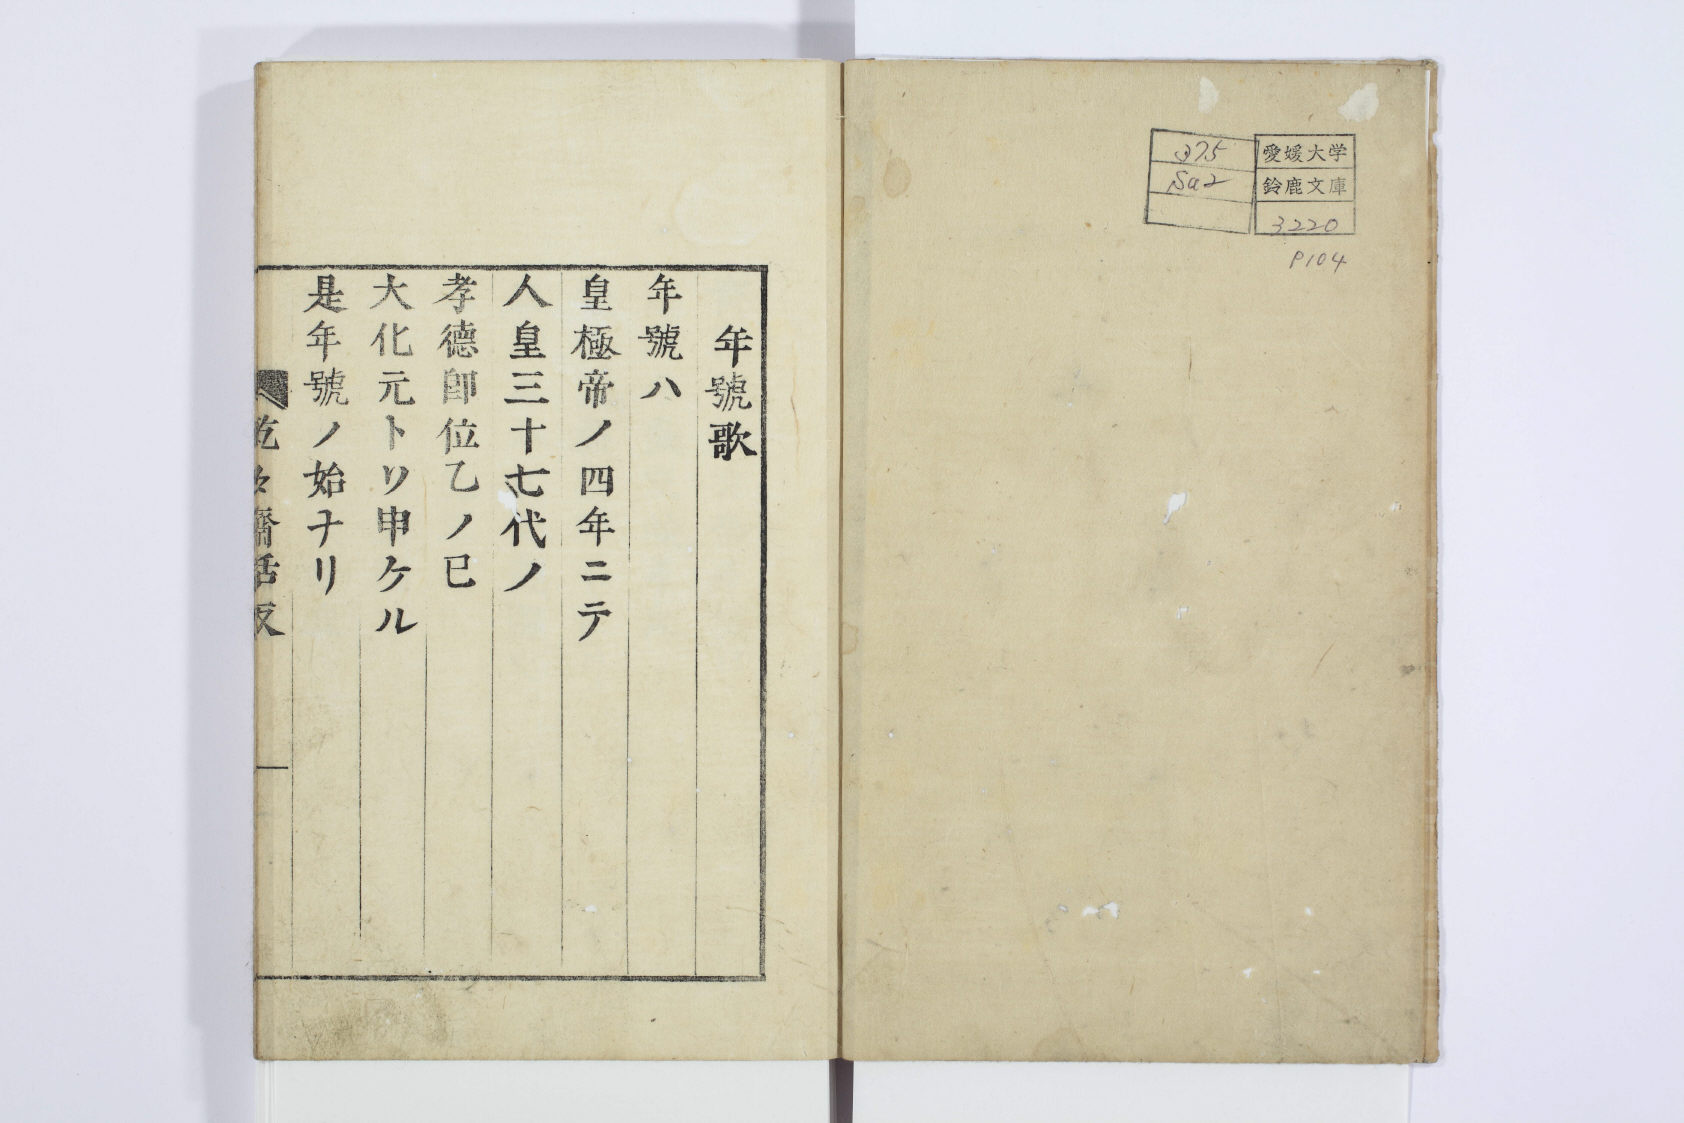 愛媛大学
鈴鹿文庫
3220
375
Sa2
P104
年號歌
年號ハ
皇極帝ノ四年ニテ
人皇三十七代ノ
孝德卽位乙ノ巳
大化元トリ申ケル
是年號ノ始ナリ
乾々齋活版
一